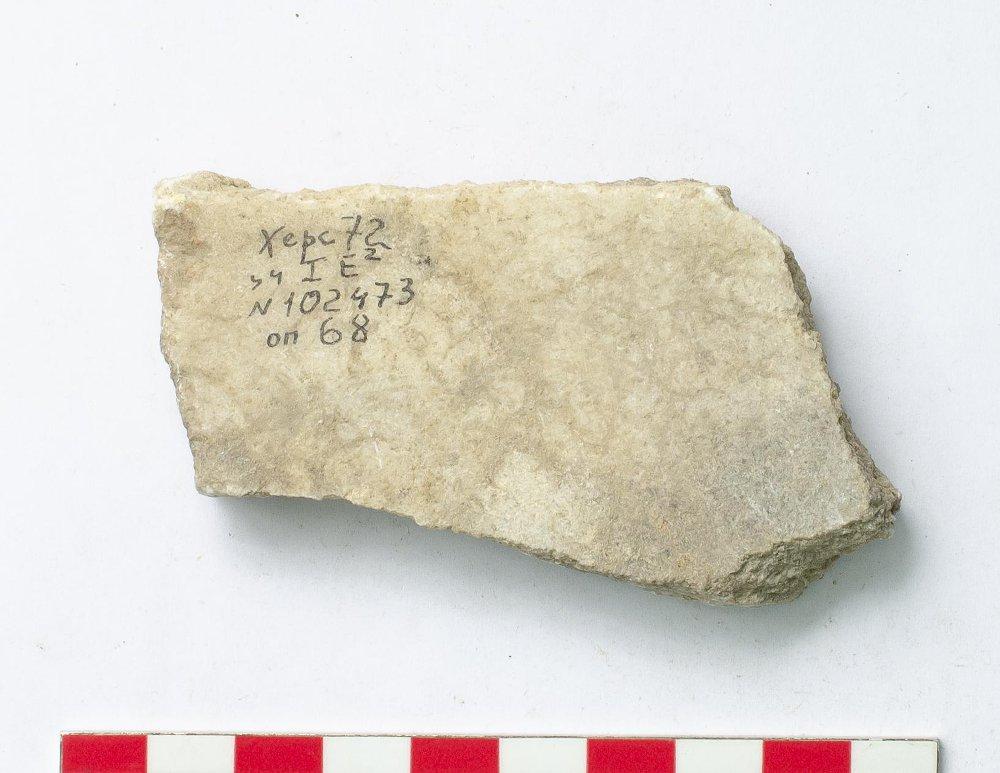 Херс 72
уч I E²
N 102473
оп 68